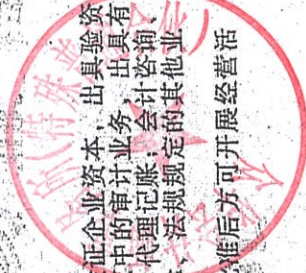 证企业资本，出具验资
中的审计业务，出具有
代理记账；会计咨询、
、法规规定的其他业
准后方可开展经营活
(特殊普